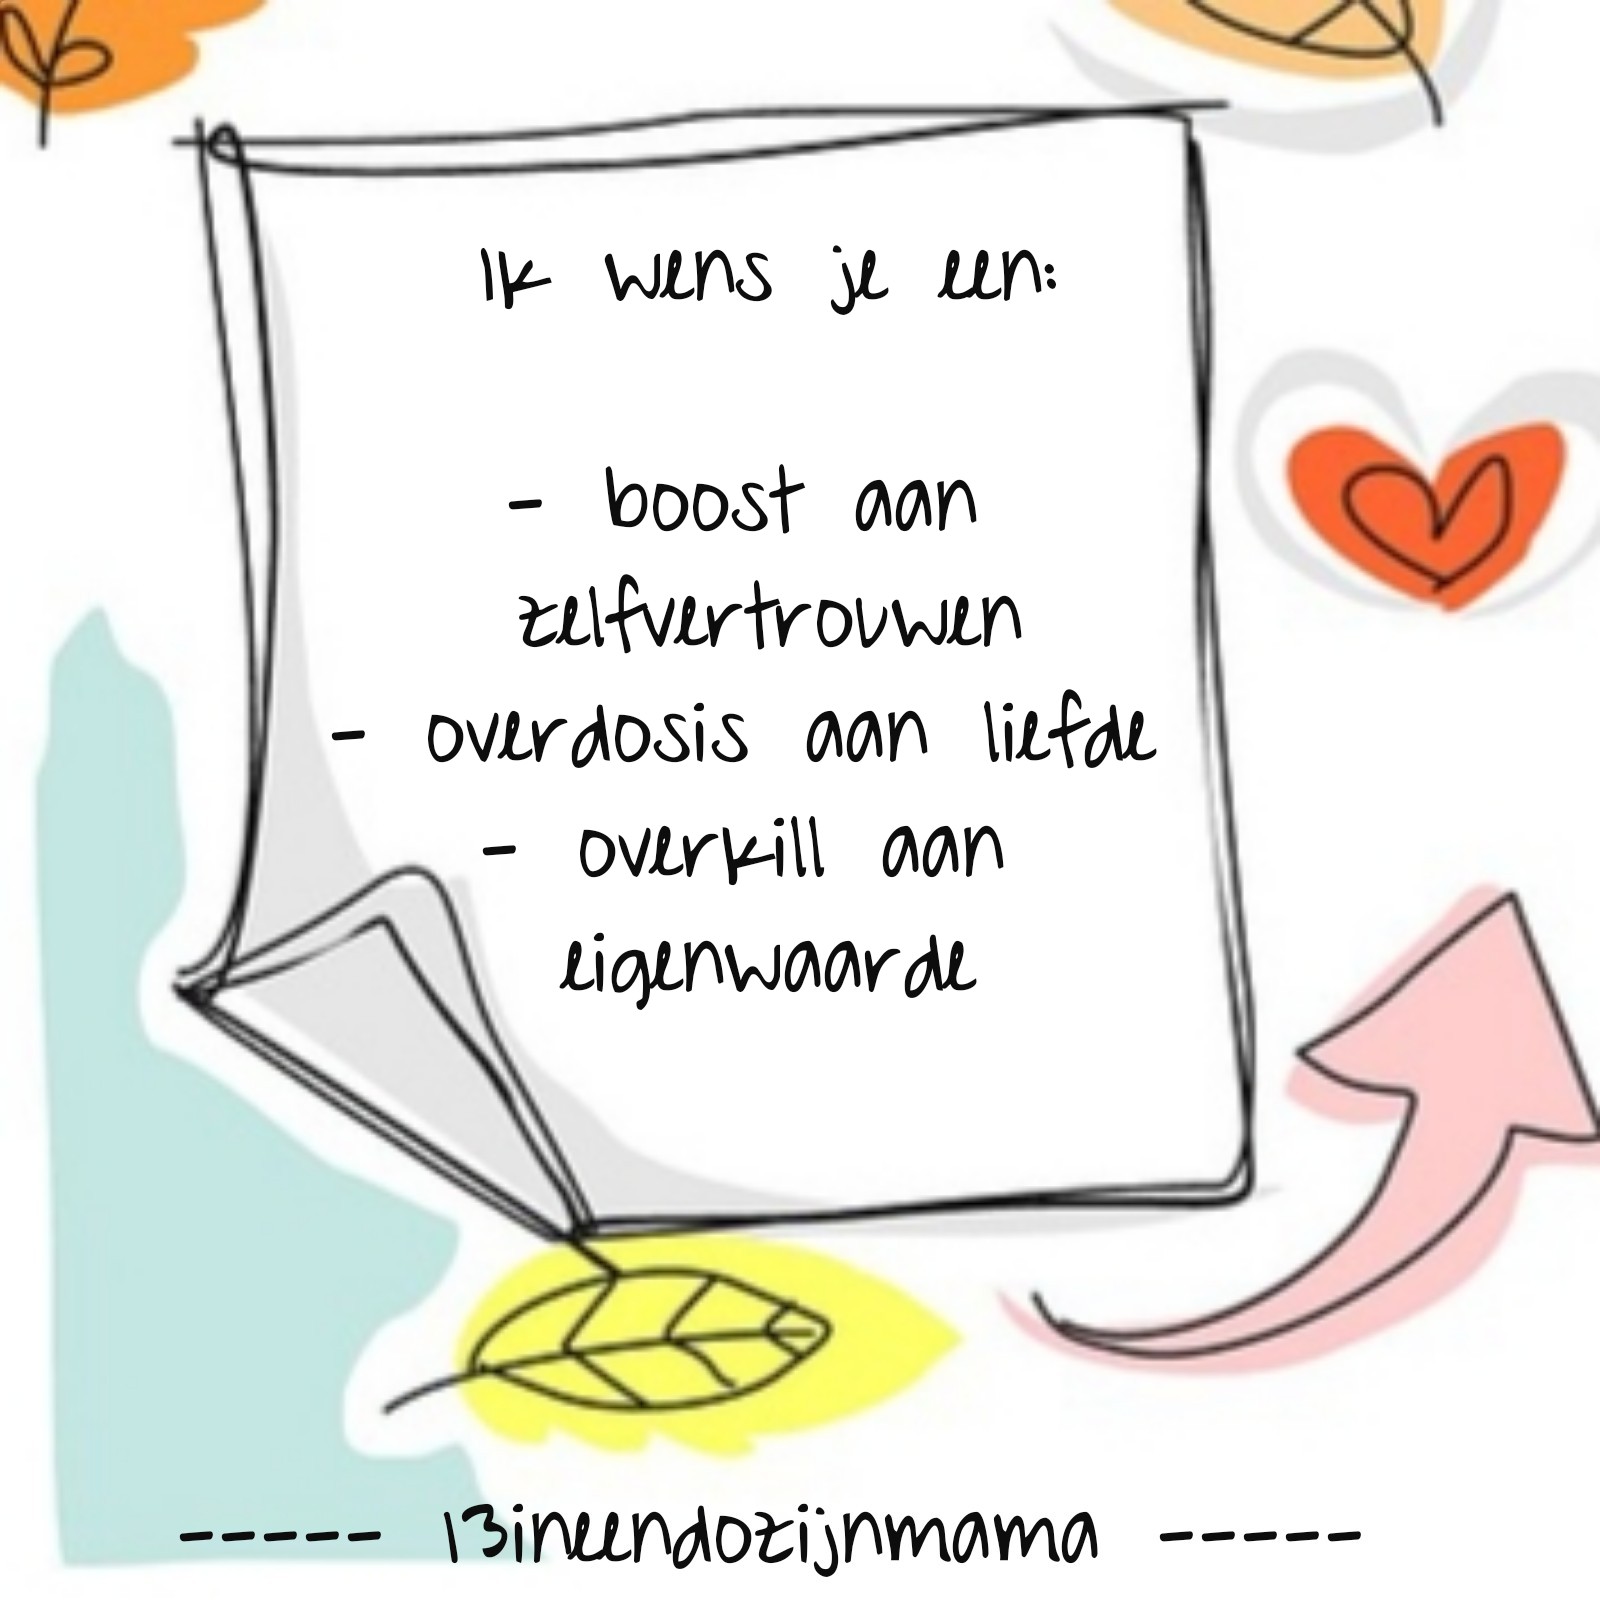 Ik wens je een:
- boost aan
zelfvertrouwen
- overdosis aan liefde
- overkill aan
eigenwaarde
----- 13ineendozijnmama -----